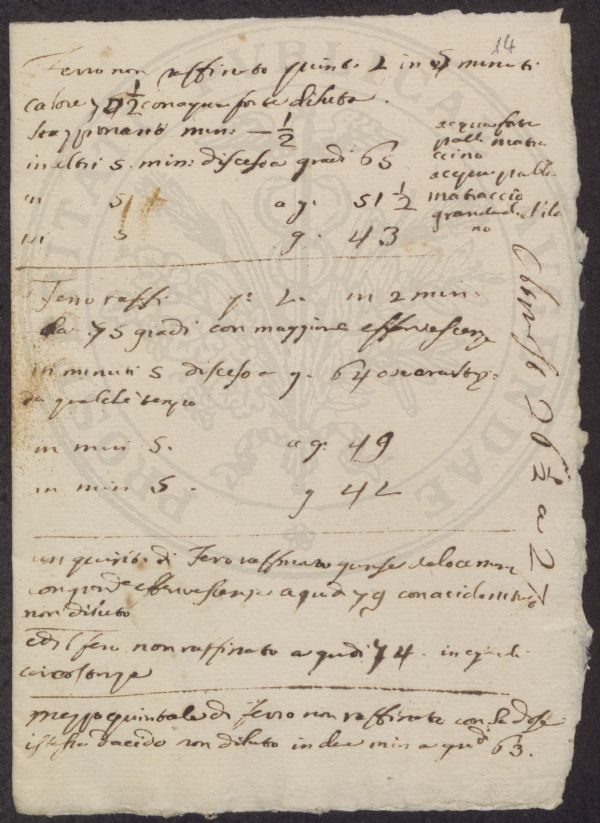 14
Ferro non raffinato quint. 2 in 5 minuti
calore 76 1/2 con aqua forte diluta.
Stazionario min: — 1/2
in altri 5. min: disceso a gradi 65
in 5 a g. 51 1/2
in 5 g. 43
acqua forte
matra
ccino
acqua
matraccio
grande
no
Ferro raffi. q: 2. in 2 min:
a 75 gradi con maggiore effervescenza
in minuti 5 disceso a g. 64
da qualche tempo
in min 5. a g. 49
in min 5. g 42
un quint. di Ferro raffinato giunse velocem.
con grand effervescenza a gradi 79 con acido nitroso
non diluto
ed il ferro non raffinato a gradi 74. in eguali
circostanze
mezzo quintale di Ferro non raffinato con la dose
istessa d'acido non diluto in due min a gradi 63.
26 1/2 a 27